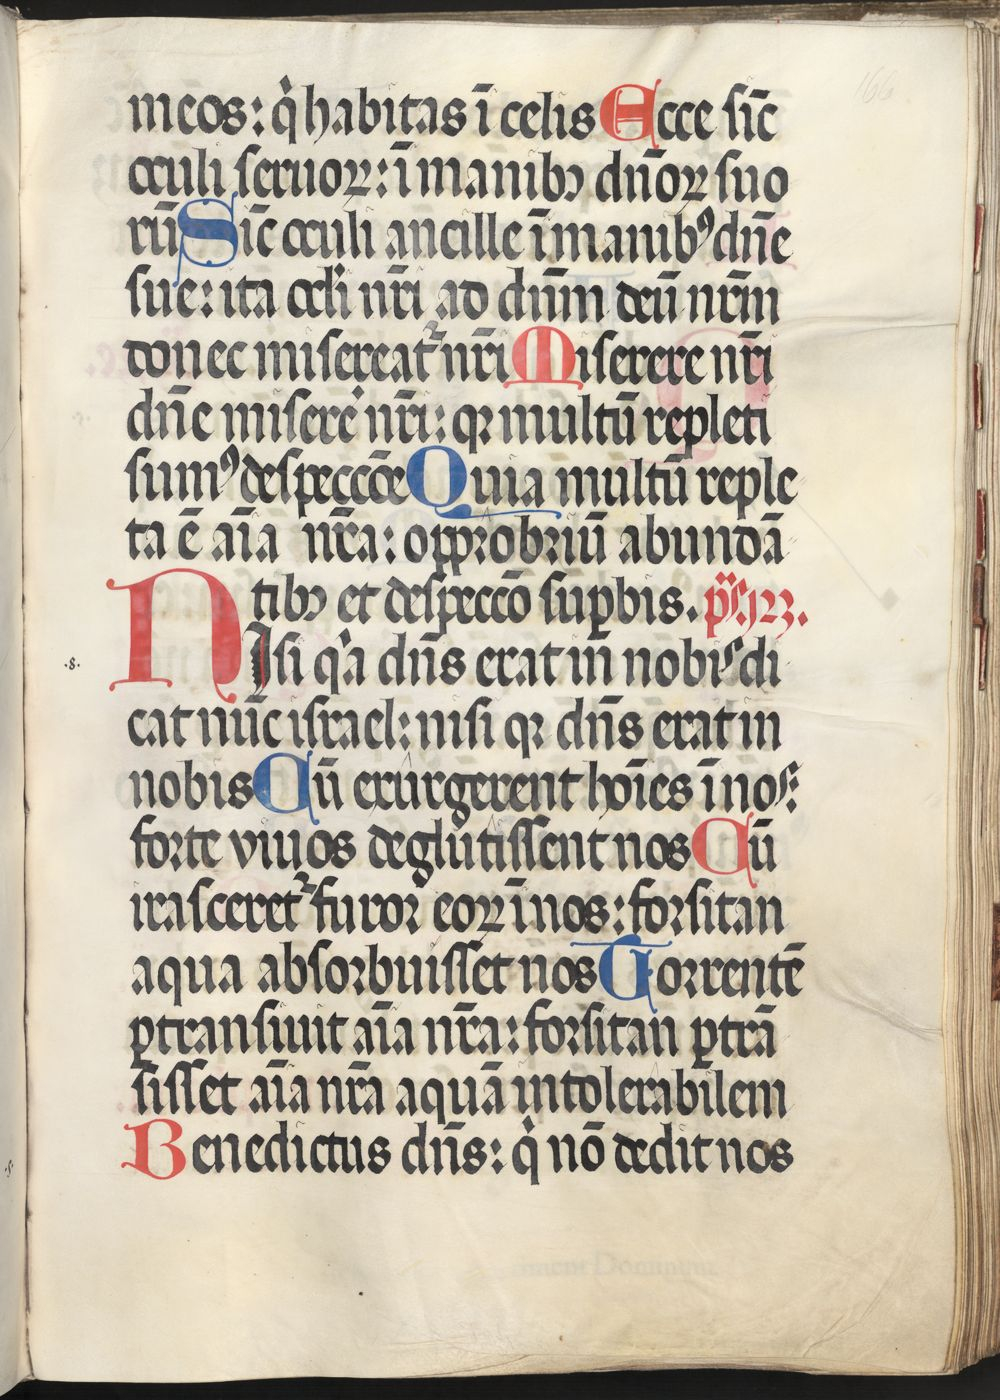 meos: qͥ habitas ī celis Ecce sic̄
oculi seruoꝝ: ī manibꝫ dn̄oꝝ suo
rū Sic̄ oculi ancille ī manibꝰ dn̄e
sue: ita ocl̓i nr̄i ad dn̄m deū nr̄m
donec misereat᷑ nr̄i Miserere nr̄i
dn̄e miserē nr̄i: qꝛ multū repleti
sumꝰ despecc̄oe Quia multū reple
ta ē aīa nr̄a: opprobriū abundā
tibꝫ et despecc̄o suꝑbis. ps̄. 123.
NIsi qͣ dn̄s erat in nobis di
cat nūc israel: nisi qꝛ dn̄s erat in
nobis Cū exurgerent hoīes ī nos:
forte viuos deglutissent nos Cū
irasceret᷑ furor eoꝝ ī nos: forsitan
aqua absorbuisset nos Torrentē
ꝑtransiuit aīa nr̄a: forsitan ꝑtrā
sisset aīa nr̄a aquā intolerabilem
Benedictus dn̄s: qͥ nō dedit nos
.8.
166